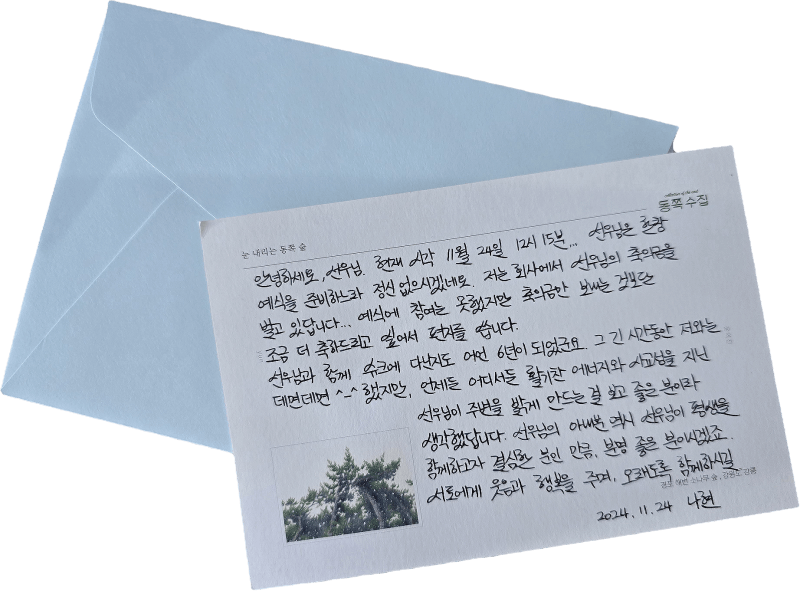 collection of the east
동쪽수집
눈 내리는 동쪽 숲
안녕하세요, 선우님. 현재 시각 11월 24일 12시 15분... 선우님은 한창
예식을 준비하느라 정신 없으시겠네요. 저는 회사에서 선우님의 축의금을
받고 있답니다... 예식에 참여는 못했지만 축의금만 보내는 것보단
조금 더 축하드리고 싶어서 편지를 씁니다.
선우님과 함께 슈크에 다닌지도 어언 6년이 되었군요. 그 긴 시간동안 저와는
데면데면 ^_^ 했지만, 언제든 어디서든 활기찬 에너지와 사교성을 지닌
선우님이 주변을 밝게 만드는 걸 보고 좋은 분이라
생각했답니다. 선우님의 아내분 역시 선우님이 평생을
함께하고자 결심한 분인 만큼, 분명 좋은 분이시겠죠.
서로에게 웃음과 행복을 주며, 오래도록 함께하시길
2024. 11. 24 나현